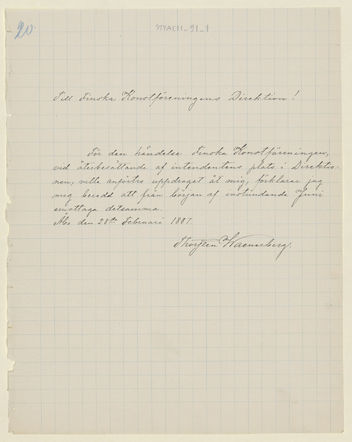 20.
Till Finska Konstföreningens Direktion!
För den händelse Finska Konstföreningen,
vid återbesättande af intendentens plats i Direktio-
nen, ville anförtro uppdraget åt mig, förklarar jag
mig beredd att från början af instundande Juni
emottaga detsamma.
Åbo den 28de Februari 1887.
Thorsten Waenerberg.